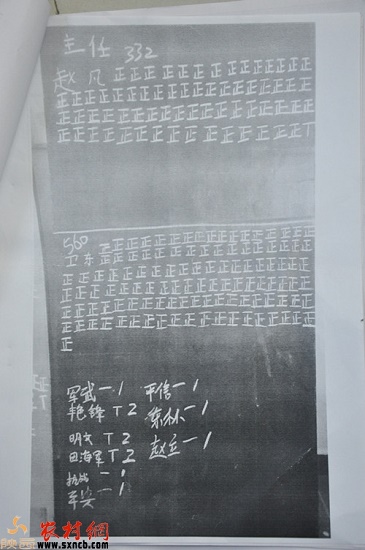 主任 332
赵凡 正正正正正正正正正正正正正正
正正正正正正正正正正正正正正正正正正
正正正正正正正正正正正正正正正正正正
正正正正正正正正正正正正正正正正T
560
卫东 正正正正正正正正正正正正正正正正
正正正正正正正正正正正正正正正正
正正正正正正正正正正正正正正正正正正正正
正正正正正正正正正正正正正正正正正正正正
正正正正正正正正正正正正正正正正正正正正
正正正正正正正正正正正正正正正正正正正
正
军武 一 1 平信 一 1
艳锋 T 2 一 1
明文 T 2
田海军 T 2 赵立 一 1
抗战 一 1
军 一 1
陕西农村网
www.sxncb.com